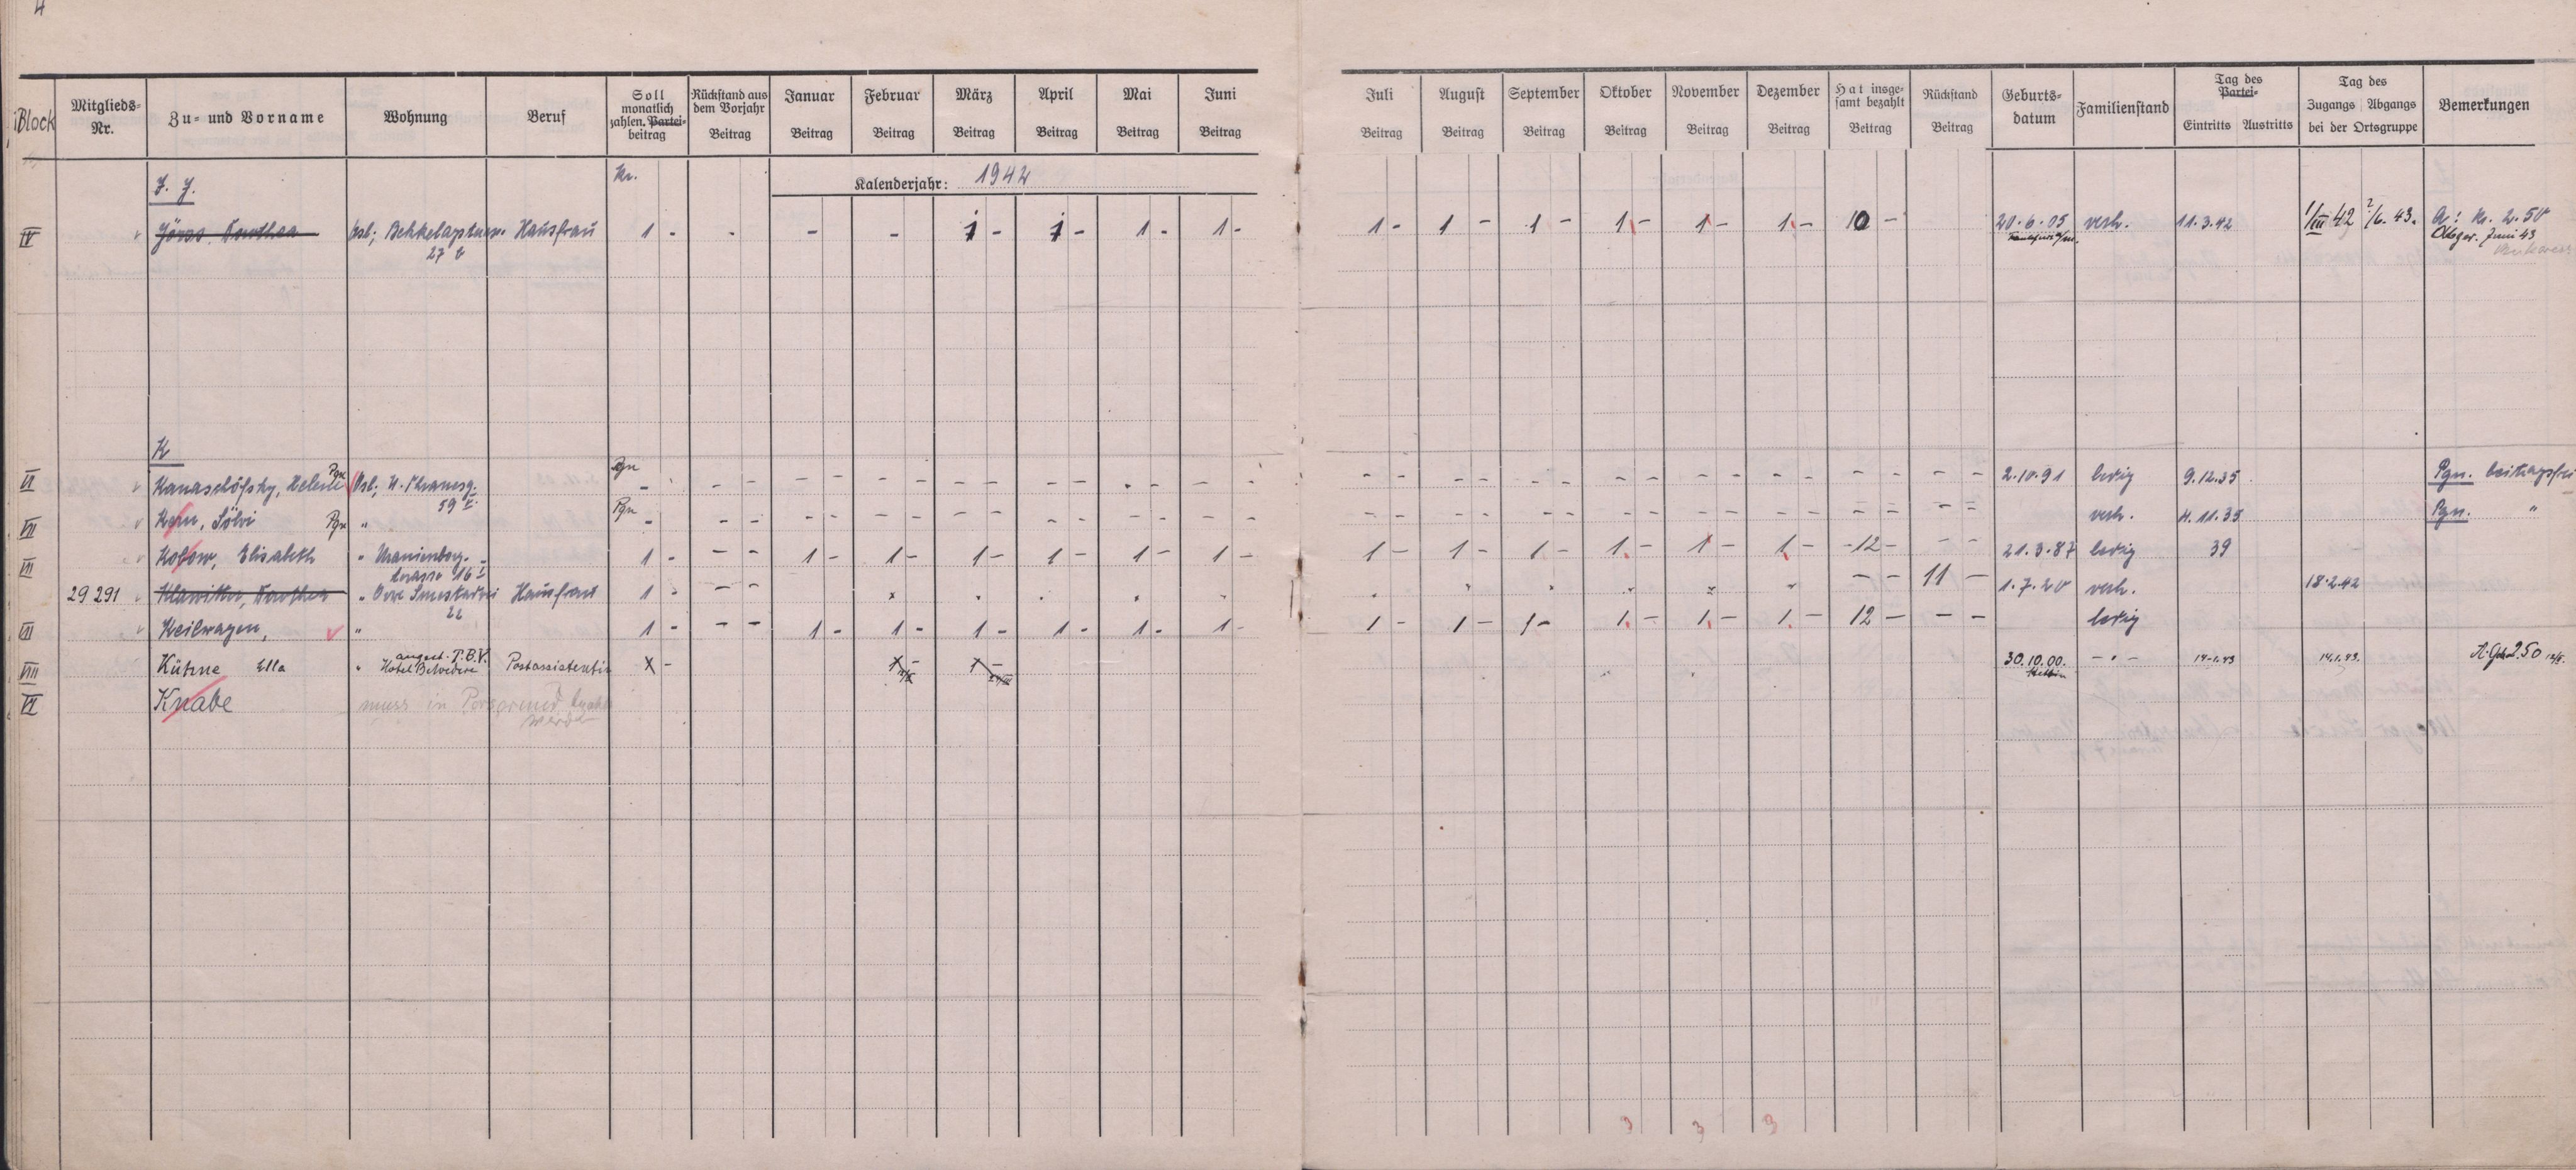 4
iBlock Mitglieds-Nr. Zu- und Vorname Wohnung Beruf Soll monatlich zahlen. Partei-beitrag Rückstand aus dem Vorjahr Beitrag Januar Beitrag Februar Beitrag März Beitrag April Beitrag Mai Beitrag Juni Beitrag Juli Beitrag August Beitrag September Beitrag Oktober Beitrag November Beitrag Dezember Beitrag Hat insge-samt bezahlt Beitrag Rückstand Beitrag Geburts-datum Familienstand Tag des Partei- Eintritts Austritts Tag des Zugangs Abgangs bei der Ortsgruppe Bemerkungen
Kr. Kalenderjahr: 1942
J. J.
IV v Jörss, Dorothea Osl; Bekkelagstuen. Hausfrau 1 - - - - 1 - 1 - 1 - 1 - 1 - 1 - 1 - 1 - 1 - 1 - 10 - 20.6.05 verh. 11.3.42 1/III 42 2/6. 43. A: Kr. 2.50
27 b Abger. Juni 43
K
VI v Kanaschöfsky, Helene Pgn Osl; H. Pgn - - - - - - - - - - - - - - - - - - - - - 2.10.91 ledig 9.12.35 Pgn. beitragsfrei
59
VII v Kern, Sölvi Pgn " Pgn - - - - - - - - - - - - - - - - - - - - - verh. 4.11.35 Pgn. "
VII v Kobow, Elisabeth " Uranienborg- 1 - - - 1 - 1 - 1 - 1 - 1 - 1 - 1 - 1 - 1 - 1 - 1 - 1 - -12- - - 21.3.87 ledig 39
terrasse 16 I
29 291 v Klawitter, Dorothea " Hausfrau 1 - - - - - 11 - 1.7.20 verh. 18.2.42
22
VI v Keilwagen, v " 1 - - - 1 - 1 - 1 - 1 - 1 - 1 - 1 - 1 - 1 - 1 - 1 - 1 - 12 - - - ledig
angest. P.B.V.
VIII Kühne Ella " Hotel Belvedere Postassistentin X - 1 - 1 - 30.10.00. - " - 14.1.43 14.1.43. 2.50
Stettin
VI Knabe muss in werden
3 3 3